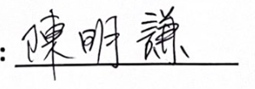 : 陳明謙